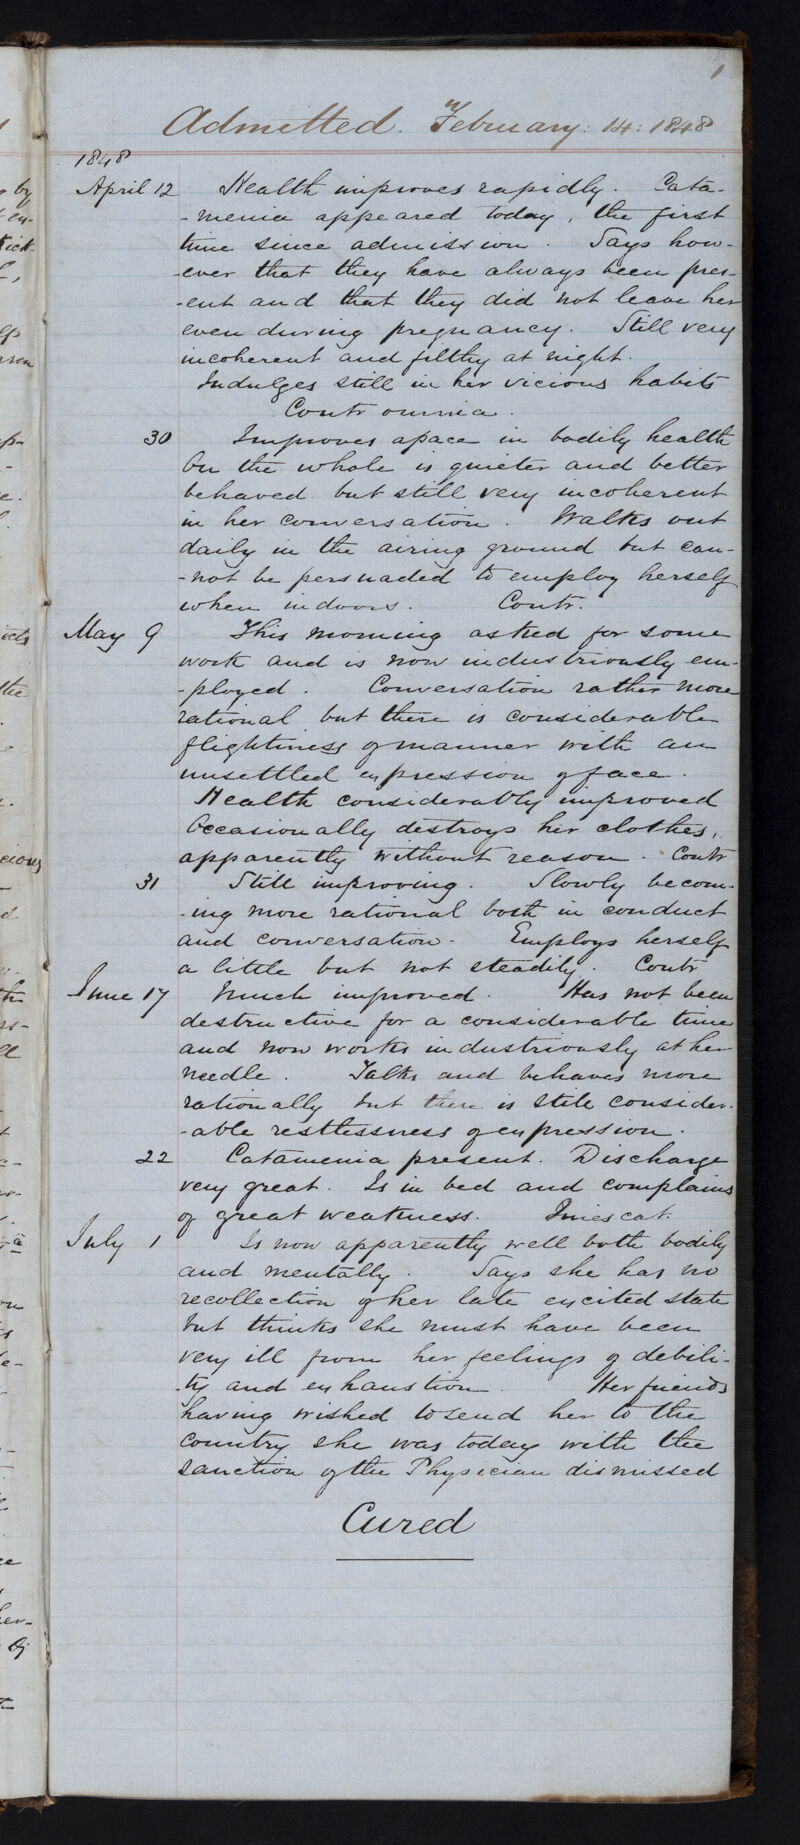 1
Admitted. February: 14: 1848
1848
April 12 Health improves rapidly. Cata-
-menia appeared today, the first
time since admission. Says how-
-ever that they have always been pres-
-ent and that they did not leave her
even during pregnancy. Still very
incoherent and filthy at night.
Indulges still in her vicious habits
Contr omnia.
30 Improves apace in bodily health
On the whole is quieter and better
behaved but still very incoherent
in her conversation. Walks out
daily in the airing ground but can-
-not be persuaded to employ herself
when indoors. Contr.
May 9 This morning asked for some
work and is now industriously em-
-ployed. Conversation rather more
rational but there is considerable
flightiness of manner with an
unsettled expression of face.
Health considerably improved
Occasionally destroys her clothes,
apparently without reason. Contr
31 Still improving. Slowly becom-
-ing more rational both in conduct
and conversation. Employs herself
a little but not steadily. Contr
June 17 Much improved. Has not been
destructive for a considerable time
and now works industriously at her
needle. Talks and behaves more
rationally but there is still consider-
-able restlessness of expression.
22 Catamenia present. Discharge
very great. Is in bed and complains
of great weakness.
July 1 Is now apparently well both bodily
and mentally. Says she has no
recollection of her late excited state
but thinks she must have been
very ill from her feelings of debili-
-ty and exhaustion. Her friends
having wished to send her to the
country she was today with the
sanction of the Physician dismissed
Cured